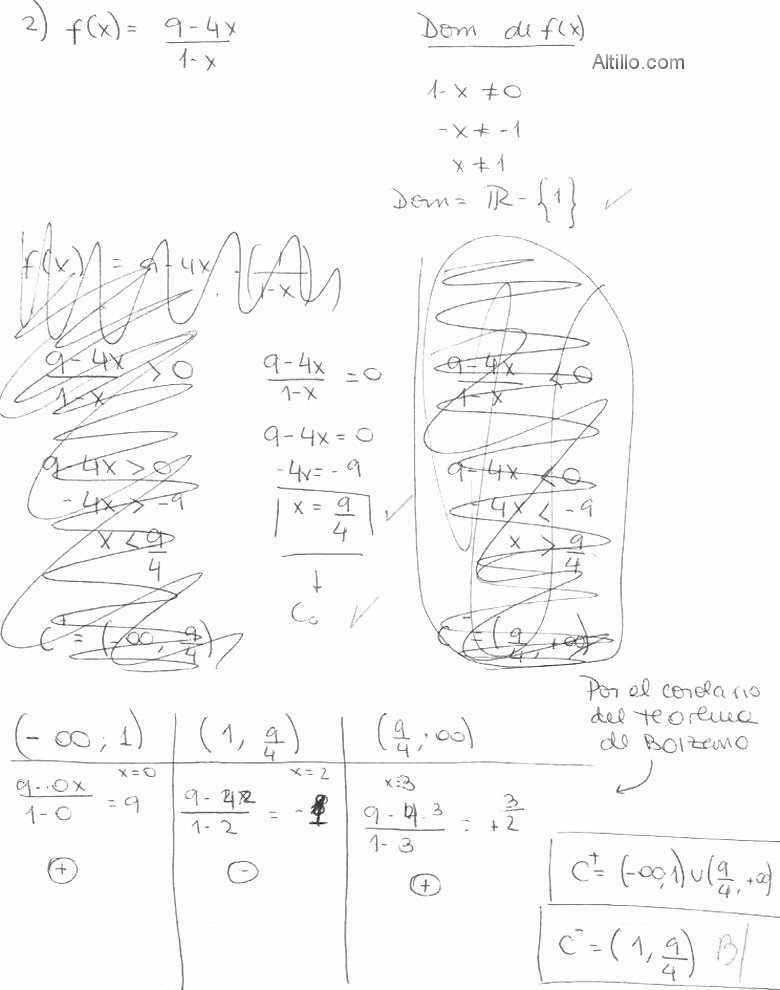 2) f(x) = 9-4x / 1-x
Dom de f(x)
Altillo.com
1-x ≠ 0
-x ≠ -1
x ≠ 1
Dom = ℝ - {1} ✓
f(x) = 9-4x · (1 / 1-x)
9-4x / 1-x > 0
9-4x > 0
-4x > -9
x < 9/4
C⁺ = (-∞, 9/4)
9-4x / 1-x = 0
9-4x = 0
-4x = -9
x = 9/4 ✓
↓
C₀ ✓
9-4x / 1-x < 0
9-4x < 0
-4x < -9
x > 9/4
C⁻ = (9/4, +∞)
Por el corolario
del teorema
de Bolzano
(-∞; 1)
x=0
9-·0x / 1-0 = 9
+
(1, 9/4)
x=2
9-4·2 / 1-2 = -1
-
(9/4; ∞)
x=3
9-4·3 / 1-3 = +3/2
+
C⁺ = (-∞, 1) ∪ (9/4, +∞)
C⁻ = (1, 9/4) B